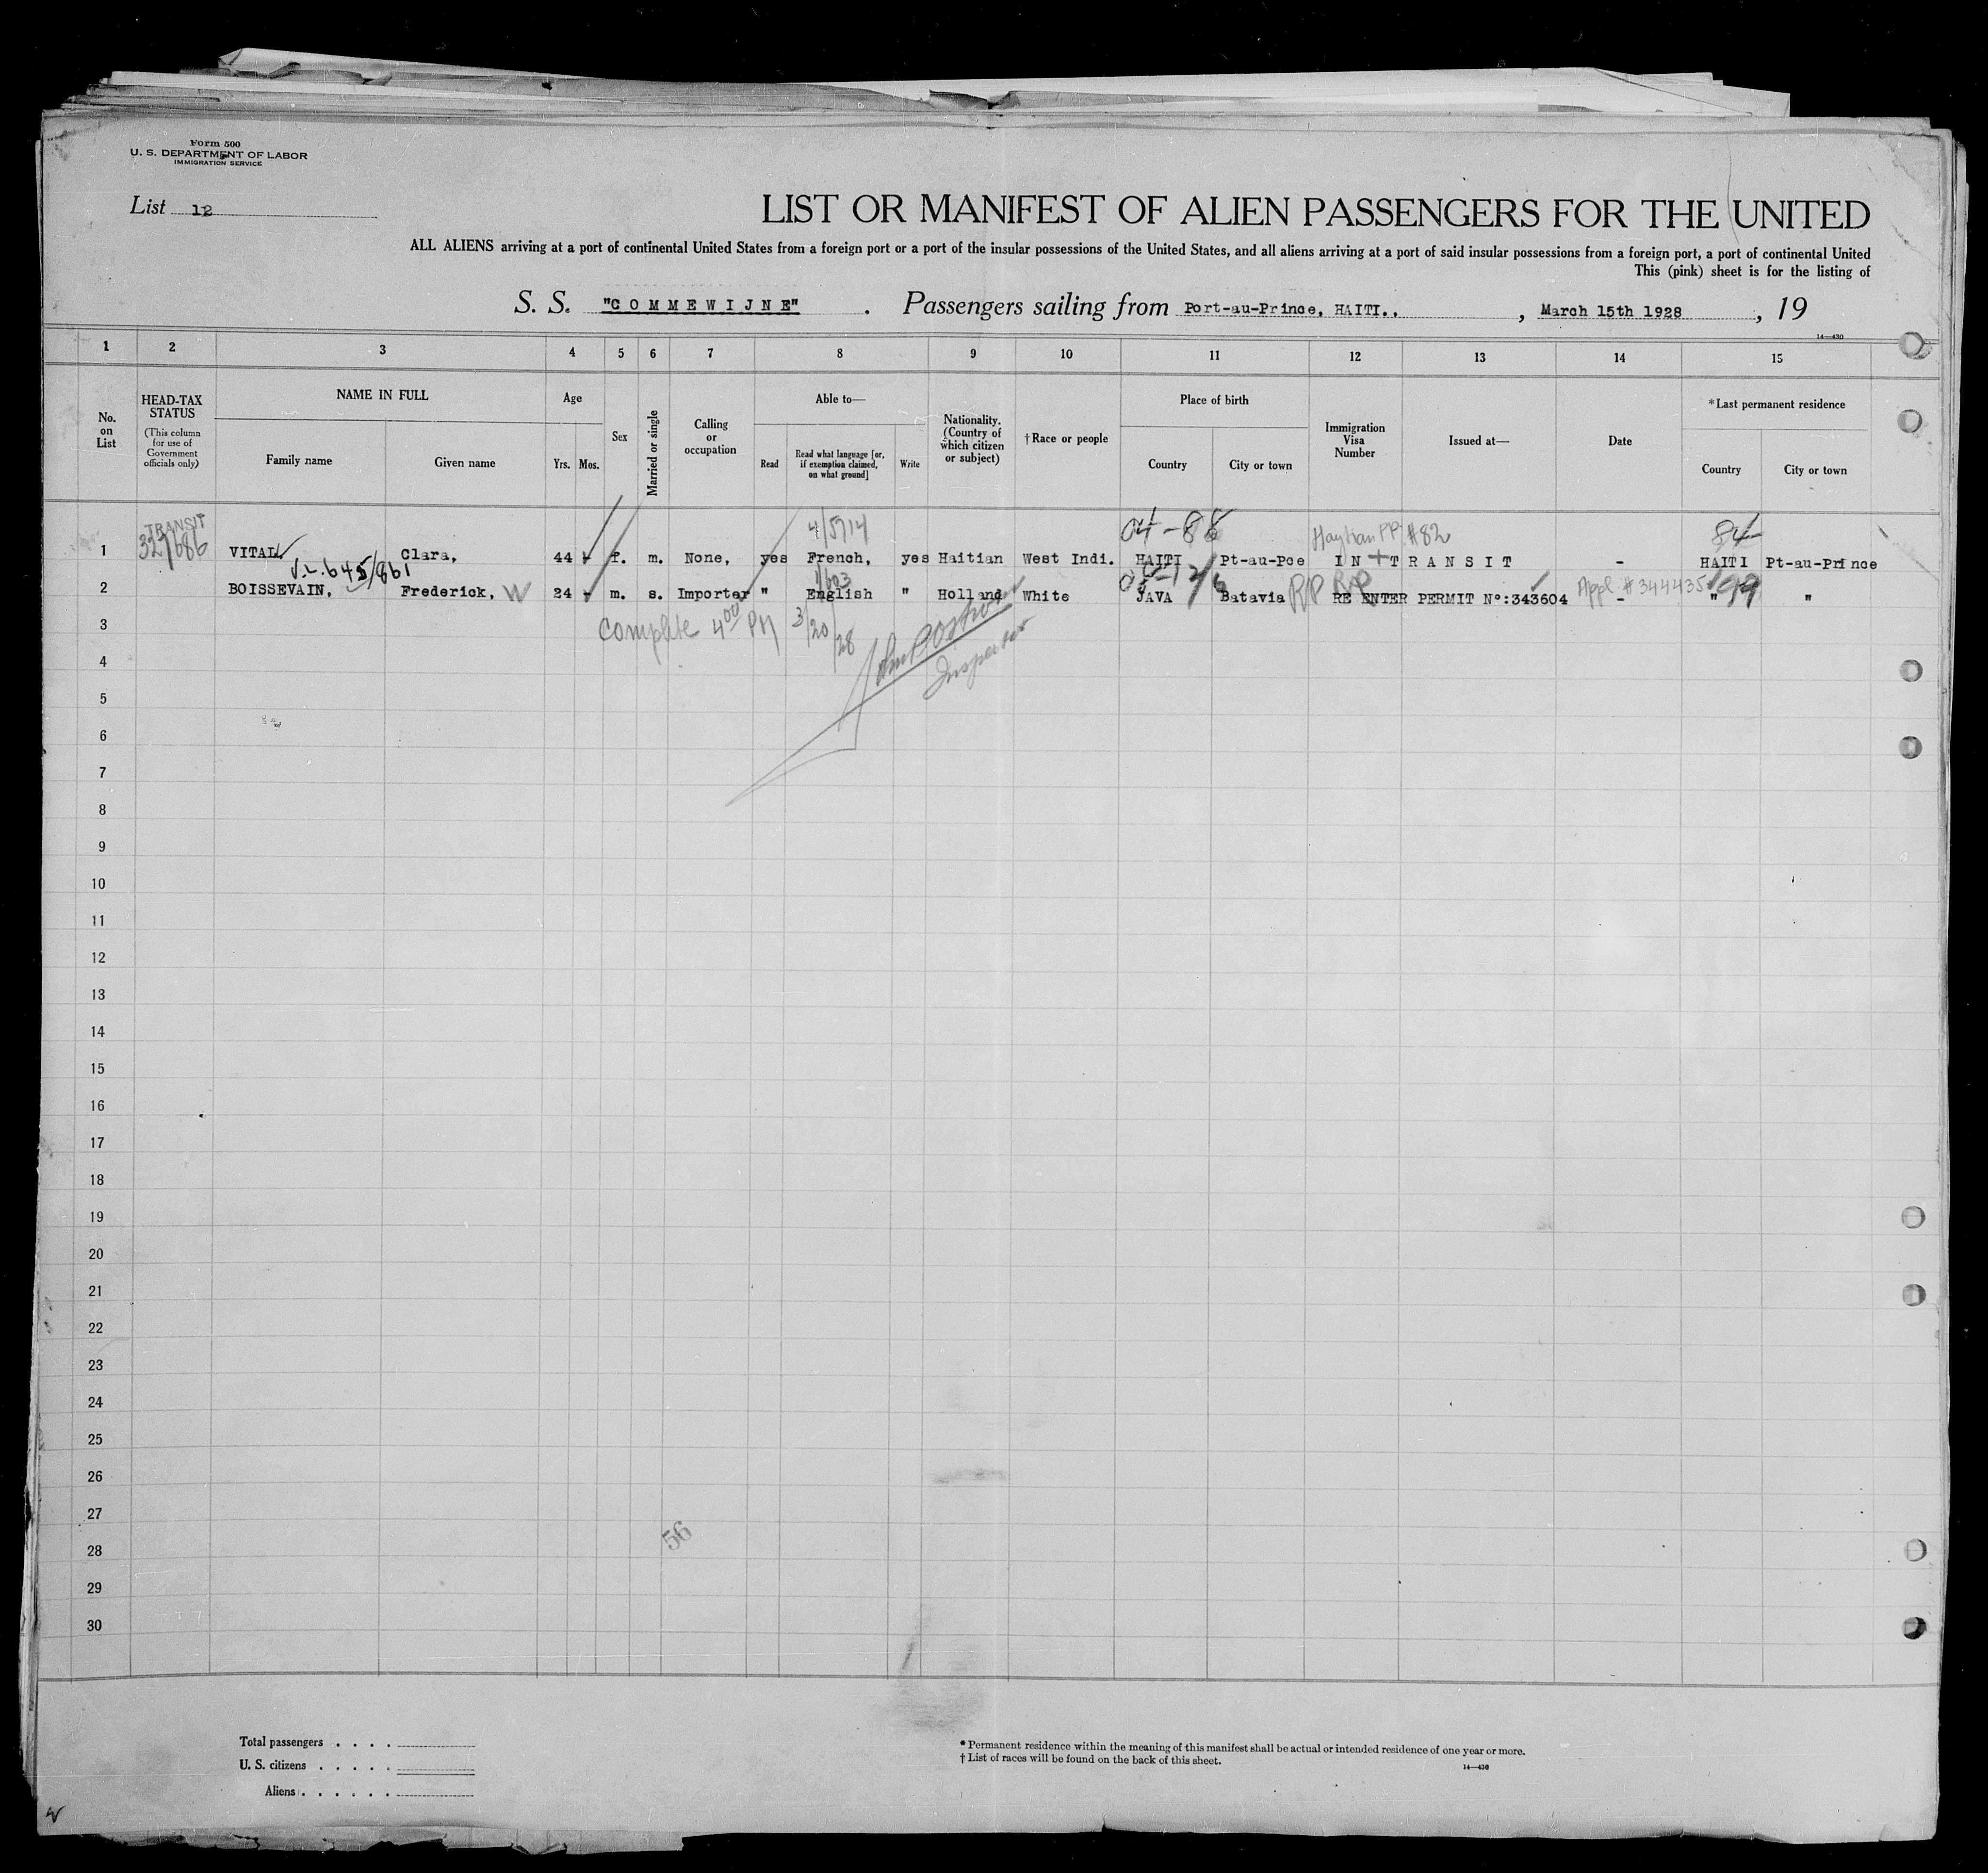 Form 500
U. S. DEPARTMENT OF LABOR
IMMIGRATION SERVICE
List 12
LIST OR MANIFEST OF ALIEN PASSENGERS FOR THE UNITED
ALL ALIENS arriving at a port of continental United States from a foreign port or a port of the insular possessions of the United States, and all aliens arriving at a port of said insular possessions from a foreign port, a port of continental United
This (pink) sheet is for the listing of
S. S. "COMMEWIJNE" . Passengers sailing from Port-au-Prince, HAITI., , March 15th 1928 , 19
14—430
1 2 3 4 5 6 7 8 9 10 11 12 13 14 15
No. on List
HEAD-TAX STATUS
(This column for use of Government officials only)
NAME IN FULL
Family name
Given name
Age
Yrs.
Mos.
Sex
Married or single
Calling or occupation
Able to—
Read
Read what language [or, if exemption claimed, on what ground]
Write
Nationality. (Country of which citizen or subject)
†Race or people
Place of birth
Country
City or town
Immigration Visa Number
Issued at—
Date
*Last permanent residence
Country
City or town
TRANSIT
4/5714
04-88
Haytian PP #82
84
1 327686 VITAL Clara, 44 - f. m. None, yes French, yes Haitian West Indi. HAITI Pt-au-Pce IN TRANSIT - HAITI Pt-au-Prince
V.L. 645/861
1/603
2 BOISSEVAIN, Frederick, W 24 - m. s. Importer " English " Holland White JAVA Batavia RP RP RE ENTER PERMIT Nº:343604 Appl #344435 - " 99 "
3 Complete 4 00 PM 3/20/28
Inspector
4
5
6
7
8
9
10
11
12
13
14
15
16
17
18
19
20
21
22
23
24
25
26
27
56
28
29
30
Total passengers . . . .
U. S. citizens . . . . .
Aliens . . . . . .
* Permanent residence within the meaning of this manifest shall be actual or intended residence of one year or more.
† List of races will be found on the back of this sheet.
14—430